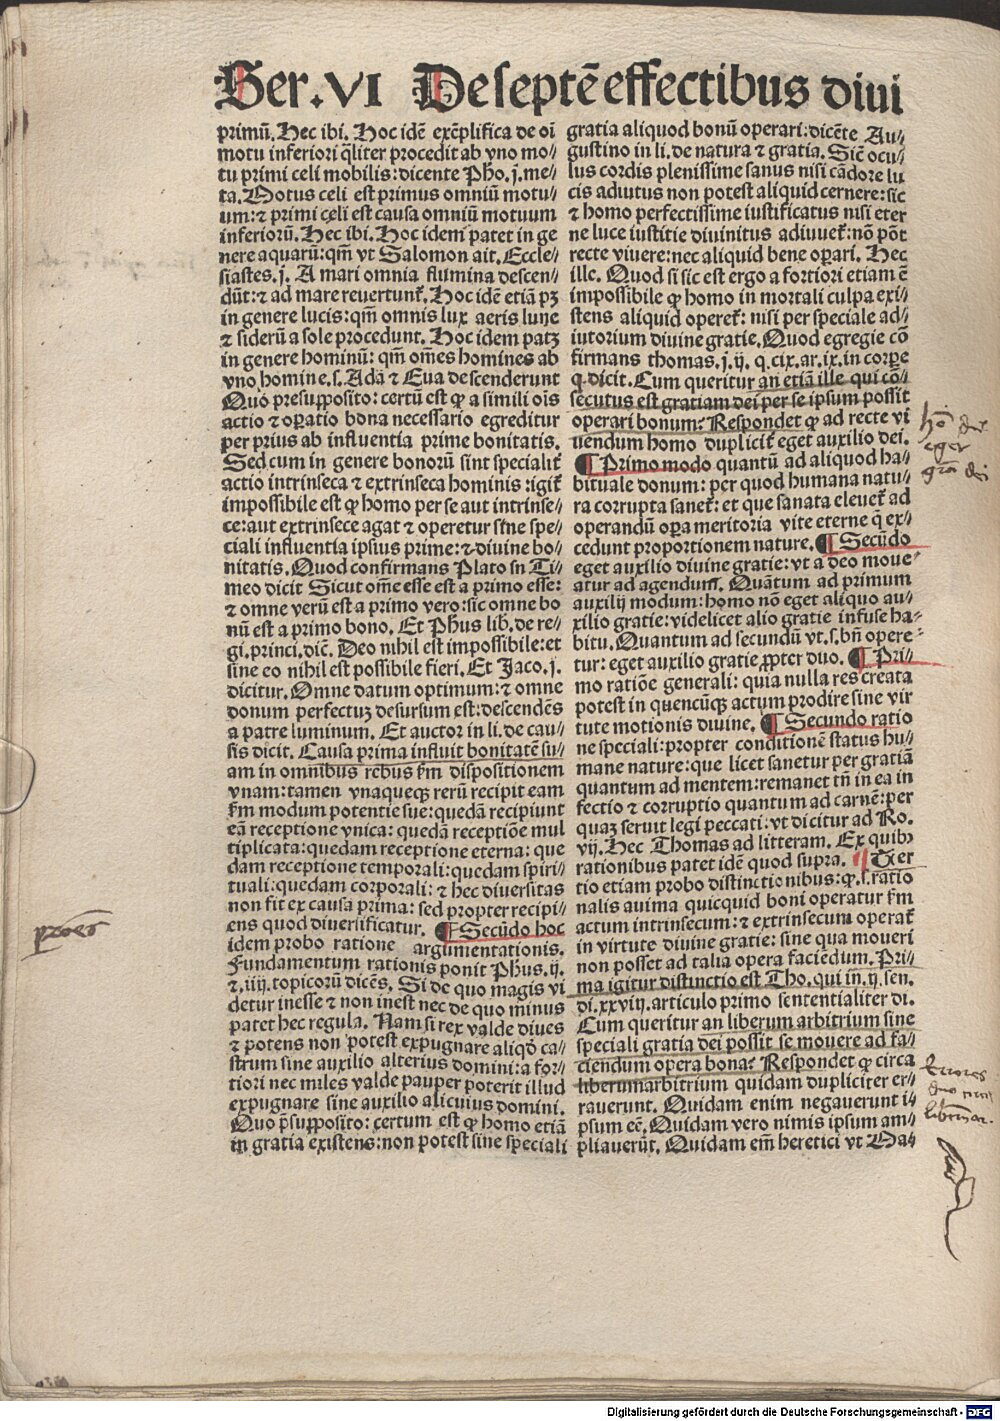 Ser. VI De septē effectibus diui
primū. Hec ibi. Hoc idē exēplifica de oī
motu inferiori q̄liter procedit ab vno mo//
tu primi celi mobilis: dicente Pho. j. me//
ta. Motus celi est primus omniū motu//
um: ⁊ primi celi est causa omniū motuum
inferiorū. Hec ibi. Hoc idem patet in ge
nere aquarū: qm̄ vt Salomon ait. Eccle//
siastes. j. A mari omnia flumina descen//
dūt: ⁊ ad mare reuertunt̄. Hoc idē etiā pꝫ
in genere lucis: qm̄ omnis lux aeris lune
⁊ siderū a sole procedunt. Hoc idem patꝫ
in genere hominū: qm̄ oēs homines ab
vno homine. s. Adā ⁊ Eua descenderunt
Quo presupposito: certū est ꝙ a simili ois
actio ⁊ oꝑatio bona necessario egreditur
per prius ab influentia prime bonitatis.
Sed cum in genere bonorū sint specialit̄
actio intrinseca ⁊ extrinseca hominis: igit̄
impossibile est ꝙ homo per se aut intrinse//
ce: aut extrinsece agat ⁊ operetur sine spe//
ciali influentia ipsius prime: ⁊ diuine bo//
nitatis. Quod confirmans Plato in Ti//
meo dicit Sicut om̄e esse est a primo esse:
⁊ omne verū est a primo vero: sic omne bo
nū est a primo bono. Et Phus lib. de re//
gi. princi. dic̄. Deo nihil est impossibile: et
sine eo nihil est possibile fieri. Et Jaco. j.
dicitur. Omne datum optimum: ⁊ omne
donum perfectuꝫ desursum est: descendēs
a patre luminum. Et auctor in li. de cau//
sis dicit. Causa prima influit bonitatē su//
am in omnibus rebus ẜm dispositionem
vnam: tamen vnaqueqꝫ rerū recipit eam
ẜm modum potentie sue: quedā recipiunt
eā receptione vnica: quedā receptiōe mul
tiplicata: quedam receptione eterna: que
dam receptione temporali: quedam spiri//
tuali: quedam corporali: ⁊ hec diuersitas
non fit ex causa prima: sed propter recipi//
ens quod diuersificatur. ¶ Secūdo hoc
idem probo ratione argumentationis.
Fundamentum rationis ponit Phus. ij.
⁊. iiij. topicorū dicēs. Si de quo magis vi
detur inesse ⁊ non inest nec de quo minus
patet hec regula. Nam si rex valde diues
⁊ potens non potest expugnare aliqd̄ ca//
strum sine auxilio alterius domini: a for//
tiori nec miles valde pauper poterit illud
expugnare sine auxilio alicuius domini.
Quo p̄supposito: certum est ꝙ homo etiā
in gratia existens: non potest sine speciali
gratia aliquod bonū operari: dicēte Au//
gustino in li. de natura ⁊ gratia. Sic̄ ocu//
lus cordis plenissime sanus nisi cādore lu
cis adiutus non potest aliquid cernere: sic
⁊ homo perfectissime iustificatus nisi eter
ne luce iustitie diuinitus adiuuet̄: nō pōt
recte viuere: nec aliquid bene oꝑari. Hec
ille. Quod si sic est ergo a fortiori etiam ē
impossibile ꝙ homo in mortali culpa exi//
stens aliquid operet̄: nisi per speciale ad//
iutorium diuine gratie. Quod egregie cō
firmans thomas. j. ij. q. cix. ar. ix. in corꝑe
q. dicit. Cum queritur an etiā ille qui cō//
secutus est gratiam dei per se ipsum possit
operari bonum? Respondet ꝙ ad recte vi
uendum homo duplicit̄ eget auxilio dei.
¶ Primo modo quantū ad aliquod ha//
bituale donum: per quod humana natu//
ra corrupta sanet̄: et que sanata eleuet̄ ad
operandū oꝑa meritoria vite eterne q̄ ex//
cedunt proportionem nature. ¶ Secūdo
eget auxilio diuine gratie: vt a deo moue//
atur ad agendum. Quātum ad primum
auxilij modum: homo nō eget aliquo au//
xilio gratie: videlicet alio gratie infuse ha//
bitu. Quantum ad secundū vt. s. bn̄ opere//
tur: eget auxilio gratie ꝓpter duo. ¶ Pri//
mo ratiōe generali: quia nulla res creata
potest in quencūqꝫ actum prodire sine vir
tute motionis diuine. ¶ Secundo ratio
ne speciali: propter conditionē status hu//
mane nature: que licet sanetur per gratiā
quantum ad mentem: remanet tn̄ in ea in
fectio ⁊ corruptio quantum ad carnē: per
quaꝫ seruit legi peccati: vt dicitur ad Ro.
vij. Hec Thomas ad litteram. Ex quibꝫ
rationibus patet idē quod supra. ¶ Ter
tio etiam probo distinctionibus: ꝙ. s. ratio
nalis anima quicquid boni operatur ẜm
actum intrinsecum: ⁊ extrinsecum operat̄
in virtute diuine gratie: sine qua moueri
non posset ad talia opera faciēdum. Pri//
ma igitur distinctio est Tho. qui in. ij. sen.
di. xxviij. articulo primo sententialiter di.
Cum queritur an liberum arbitrium sine
speciali gratia dei possit se mouere ad fa//
ciendum opera bona? Respondet ꝙ circa
liberum arbitrium quidam dupliciter er//
rauerunt. Quidam enim negauerunt i//
psum eē. Quidam vero nimis ipsum am//
pliauerūt. Quidam em̄ heretici vt Ma//
eger
Errores
duo
Digitalisierung gefördert durch die Deutsche Forschungsgemeinschaft - DFG